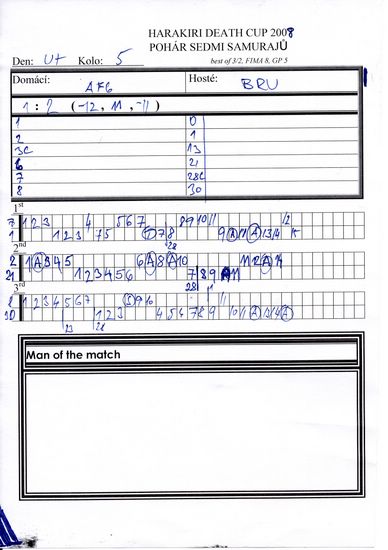 HARAKIRI DEATH CUP 2008
POHÁR SEDMI SAMURAJŮ
Den: Ut Kolo: 5 best of 3/2, FIMA 8, GP 5
Domácí: AFG Hosté: BRU
1 : 2 (-12, 11, -11)
1 0
2 1
3C 13
6 21
7 28C
8 30
1st
7 1 2 3 4 5 6 7 8 9 10 11 12
1 1 2 3 4 5 7 8 9 A 11 A 13 14 15
28
2nd
2 1 A 3 4 5 6 A 8 A 10 11 12 A 14
21 1 2 3 4 5 6 7 8 9 11
28
3rd
8 1 2 3 4 5 6 7 9 10 11
30 1 2 3 4 5 6 7 8 9 10 11 A 13 14 A
Man of the match